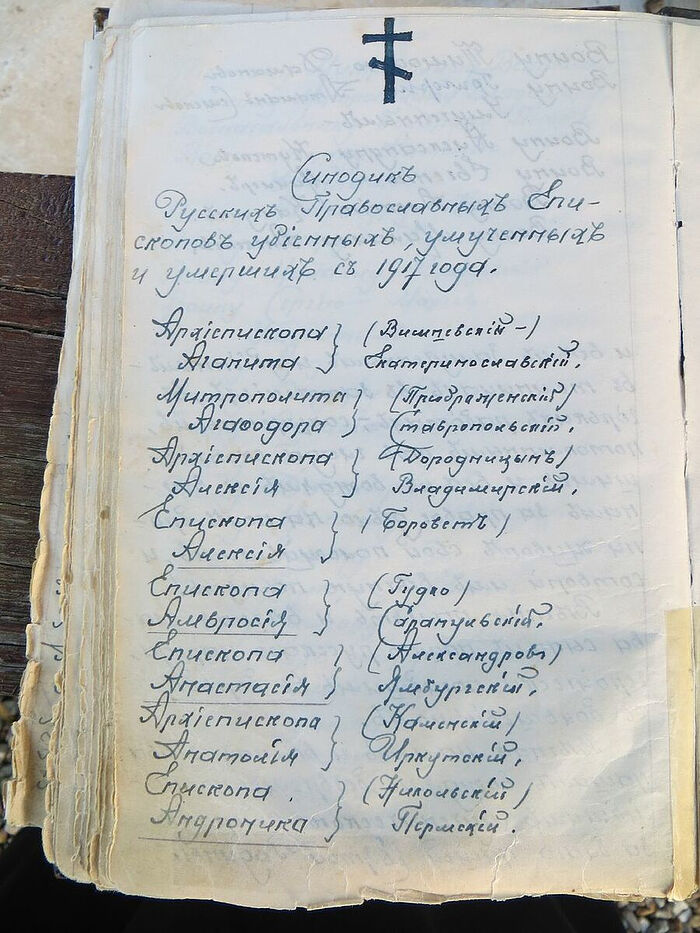 Синодикъ
Русскихъ Православныхъ Епи-
скоповъ убіенныхъ, умученныхъ
и умершихъ съ 1917 года.
Архіепископа } (Вимпевскій-)
Агапита } Екатеринославскій.
Митрополита } (Приображенскій)
Агафодора } Ставропольскій.
Архіепископа } (Дородницынъ)
Алексія } Владимирскій.
Епископа } (Бороветъ)
Алексія }
Епископа } (Гудко)
Амвросія } Сарапульскій.
Епископа } (Александровъ)
Анастасія } Ямбургскій.
Архіепископа } (Каменскій)
Анатолія } Иркутскій.
Епископа } (Никольскій)
Андроника } Пермскій.